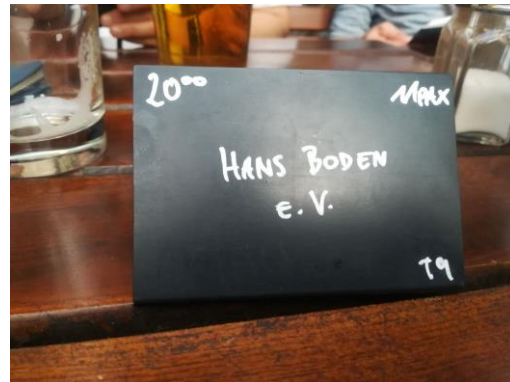 20⁰⁰ MAX
HANS BODEN
e. V.
T9